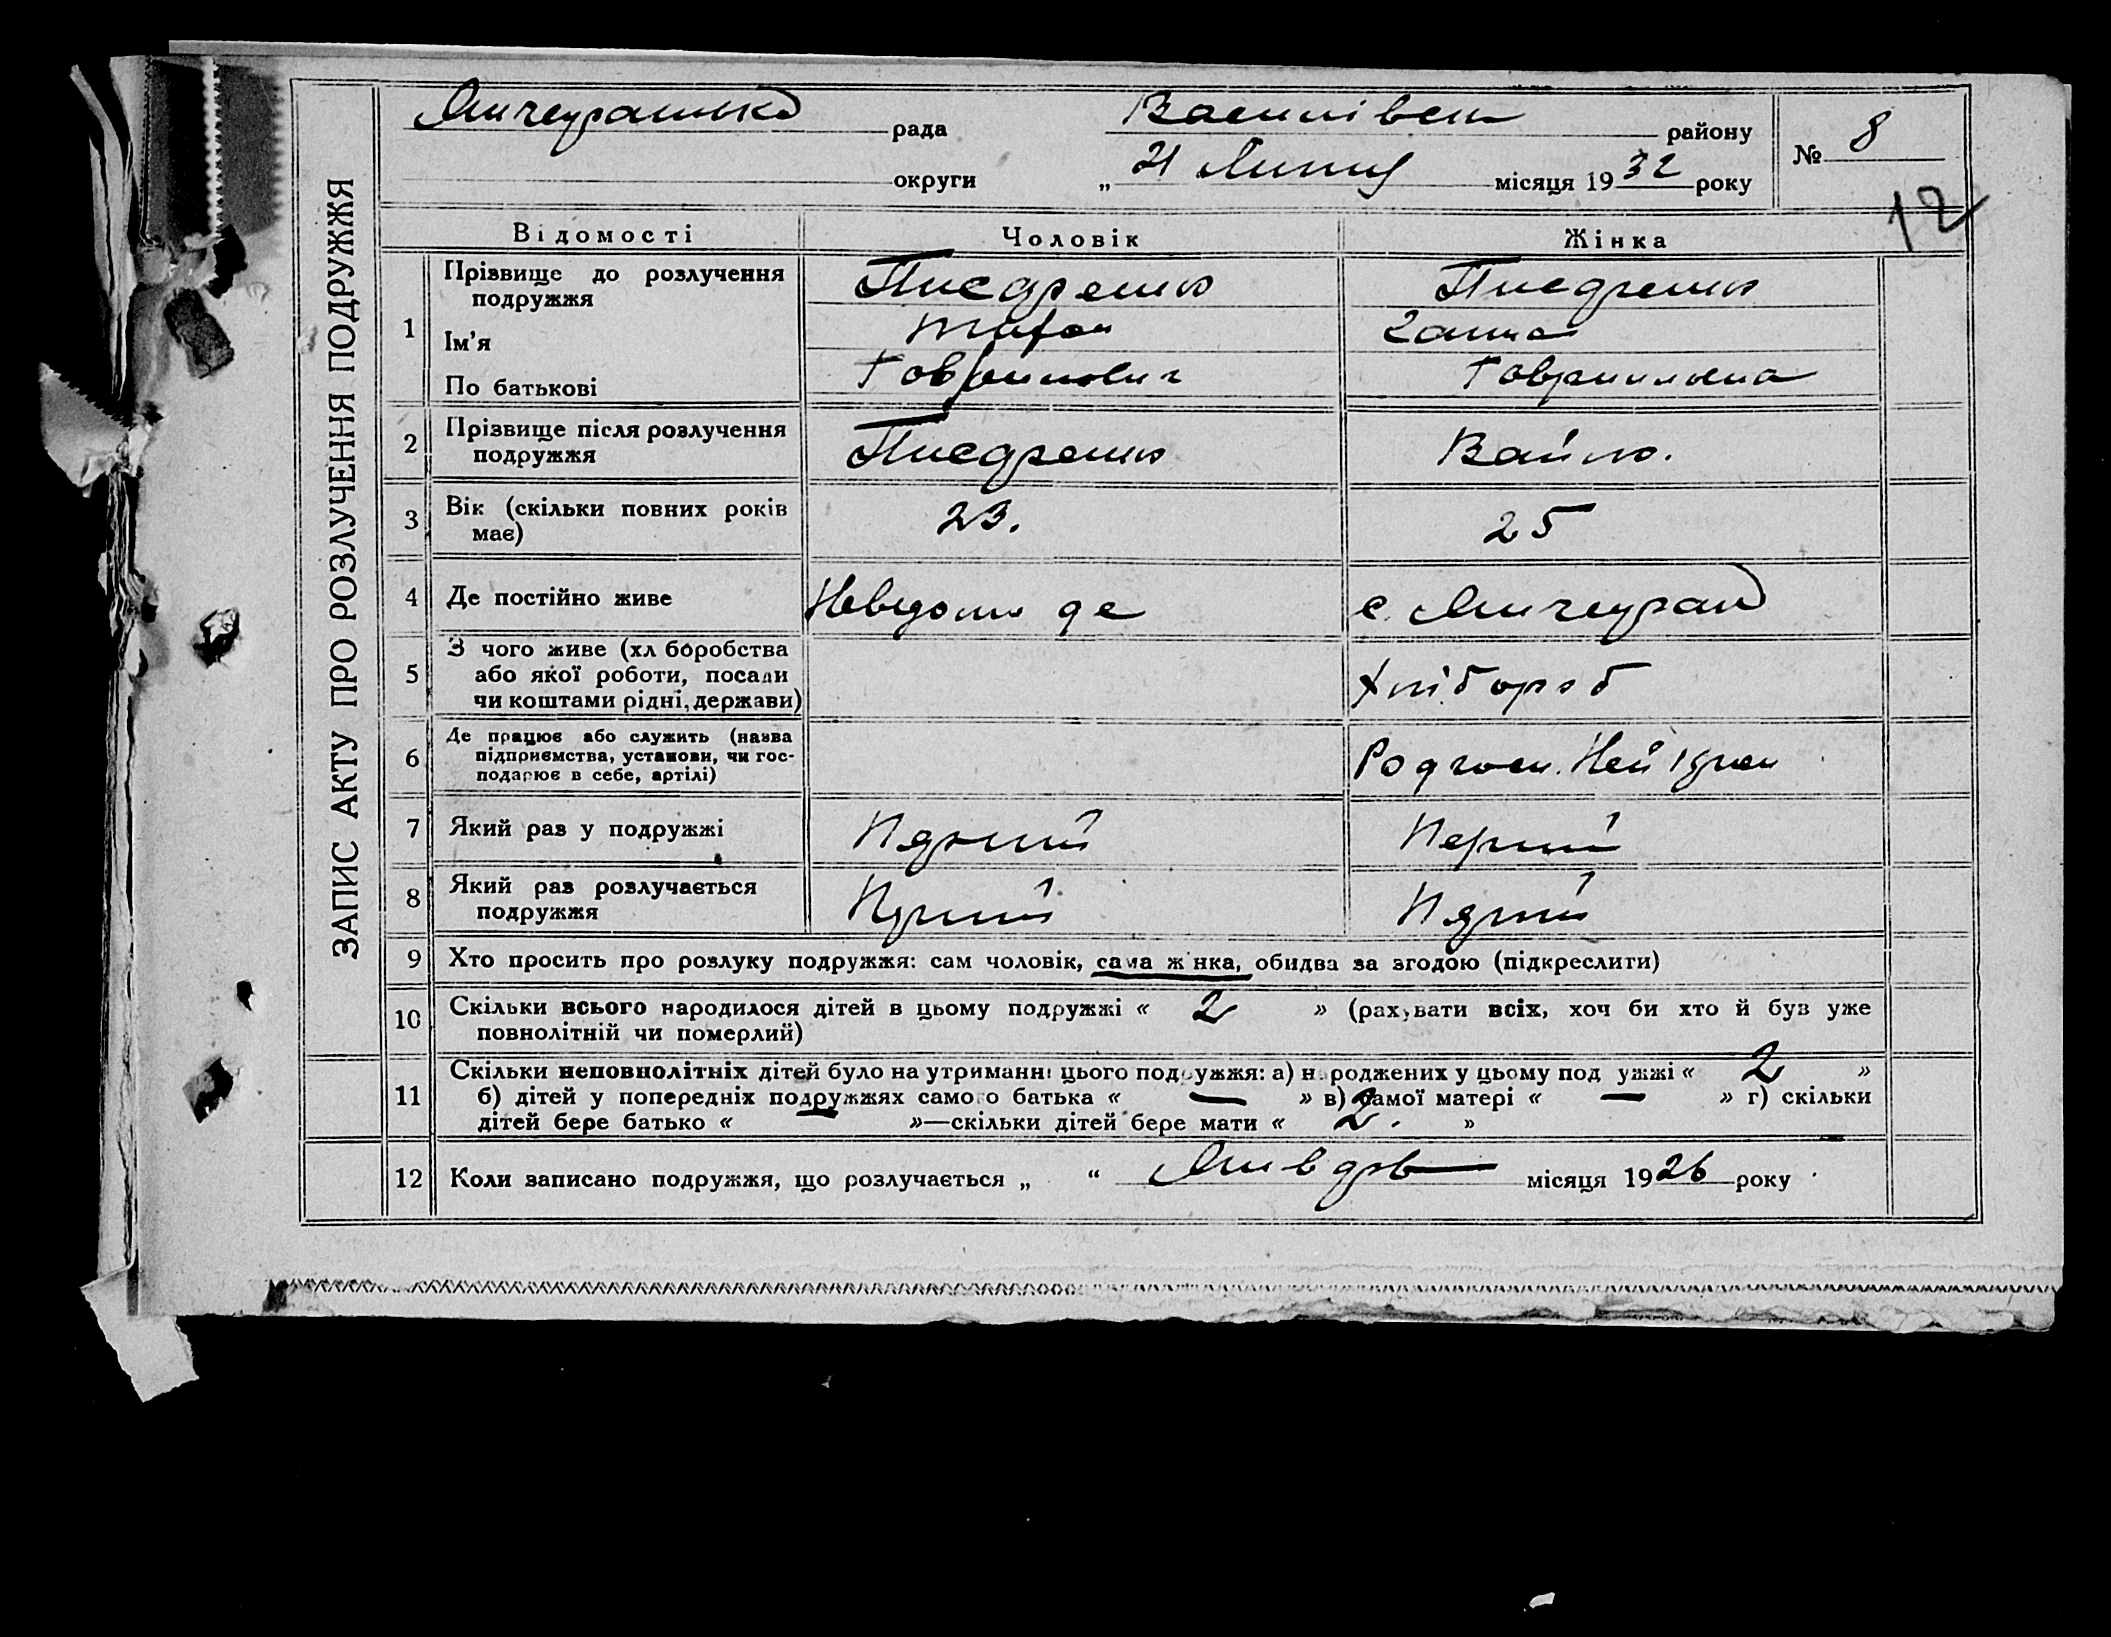 ЗАПИС АКТУ ПРО РОЗЛУЧЕННЯ ПОДРУЖЖЯ
рада Василівськ району № 8
округи „ 21 Липня місяця 1932 року
12
Відомості Чоловік Жінка
1 Прізвище до розлучення
подружжя
Ім’я Ганна
По батькові Гаврилович Гаврилівна
2 Прізвище після розлучення
подружжя
3 Вік (скільки повних років 23. 25
має)
4 Де постійно живе Невідомо де с.
5 З чого живе (хліборобства Хлібороб
або якої роботи, посади
чи коштами рідні, держави)
6 Де працює або служить (назва
підприємства, установи, чи гос-
подарює в себе, артілі)
7 Який раз у подружжі Перший Перший
8 Який раз розлучається Перший Перший
подружжя
9 Хто просить про розлуку подружжя: сам чоловік, сама жінка, обидва за згодою (підкреслити)
10 Скільки всього народилося дітей в цьому подружжі « 2 » (рахувати всіх, хоч би хто й був уже
повнолітній чи померлий)
11 Скільки неповнолітніх дітей було на утриманні цього подружжя: а) народжених у цьому подружжі « 2 »
б) дітей у попередніх подружжях самого батька « — » в) самої матері « — » г) скільки
дітей бере батько « — »—скільки дітей бере мати « 2. »
12 Коли записано подружжя, що розлучається „ “ місяця 1926 року